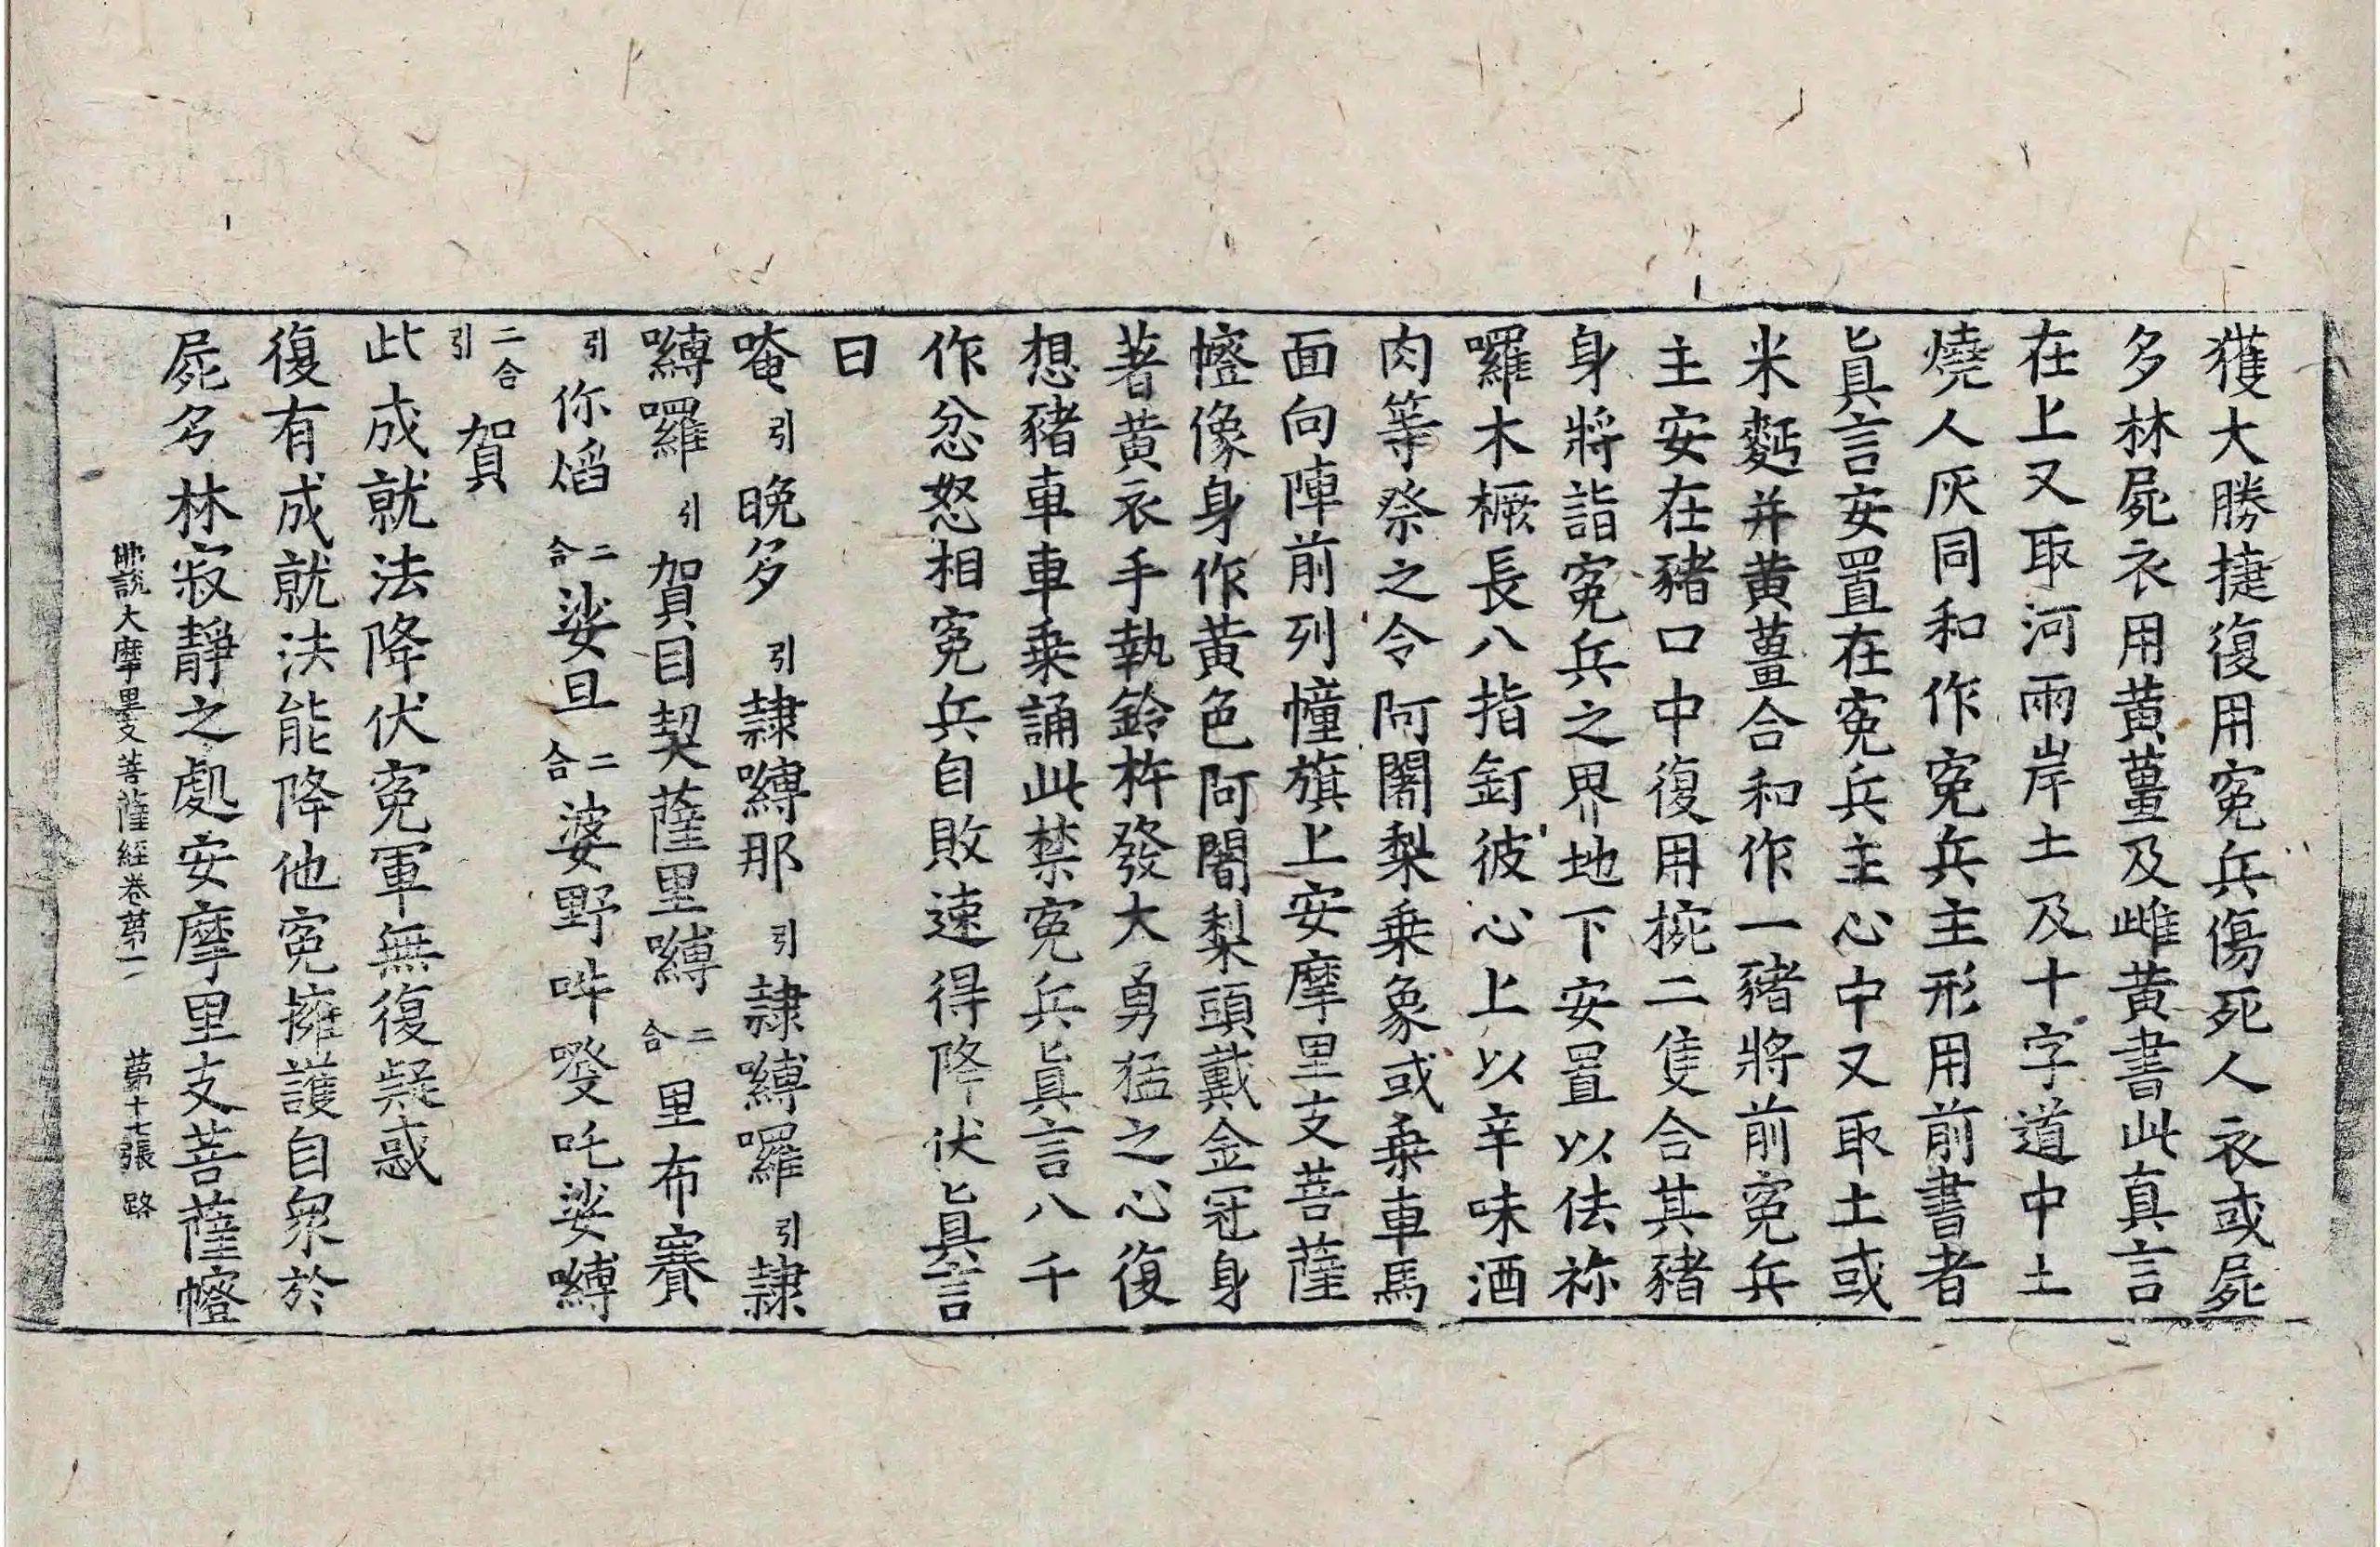 獲大勝捷復用寃兵傷死人衣或屍
多林屍衣用黄薑及雌黄書此真言
在上又取河兩岸土及十字道中土
燒人灰同和作寃兵主形用前書者
眞言安置在寃兵主心中又取土或
米麪并黄薑合和作一豬將前寃兵
主安在豬口中復用椀二隻合其豬
身將詣寃兵之界地下安置以佉祢
囉木橛長八指釘彼心上以辛味酒
肉等祭之令阿闍梨乗象或乗車馬
面向陣前列幢旗上安摩里支菩薩
㡧像身作黄色阿闍梨頭戴金冠身
著黄衣手執鈴杵發大勇猛之心復
想豬車車乗誦此禁寃兵眞言八千
作忿怒相寃兵自敗速得降伏眞言
曰
唵引晚多引隷嚩那引隷嚩囉引隷
嚩囉引賀目契薩里嚩二合里布賽
引你熖二合娑旦二合婆野吽癹吒娑嚩
二合引賀
此成就法降伏寃軍無復疑惑
復有成就法能降他寃擁護自衆於
屍多林寂靜之處安摩里支菩薩㡧
佛說大摩里支菩薩經卷第一 第十七張 路